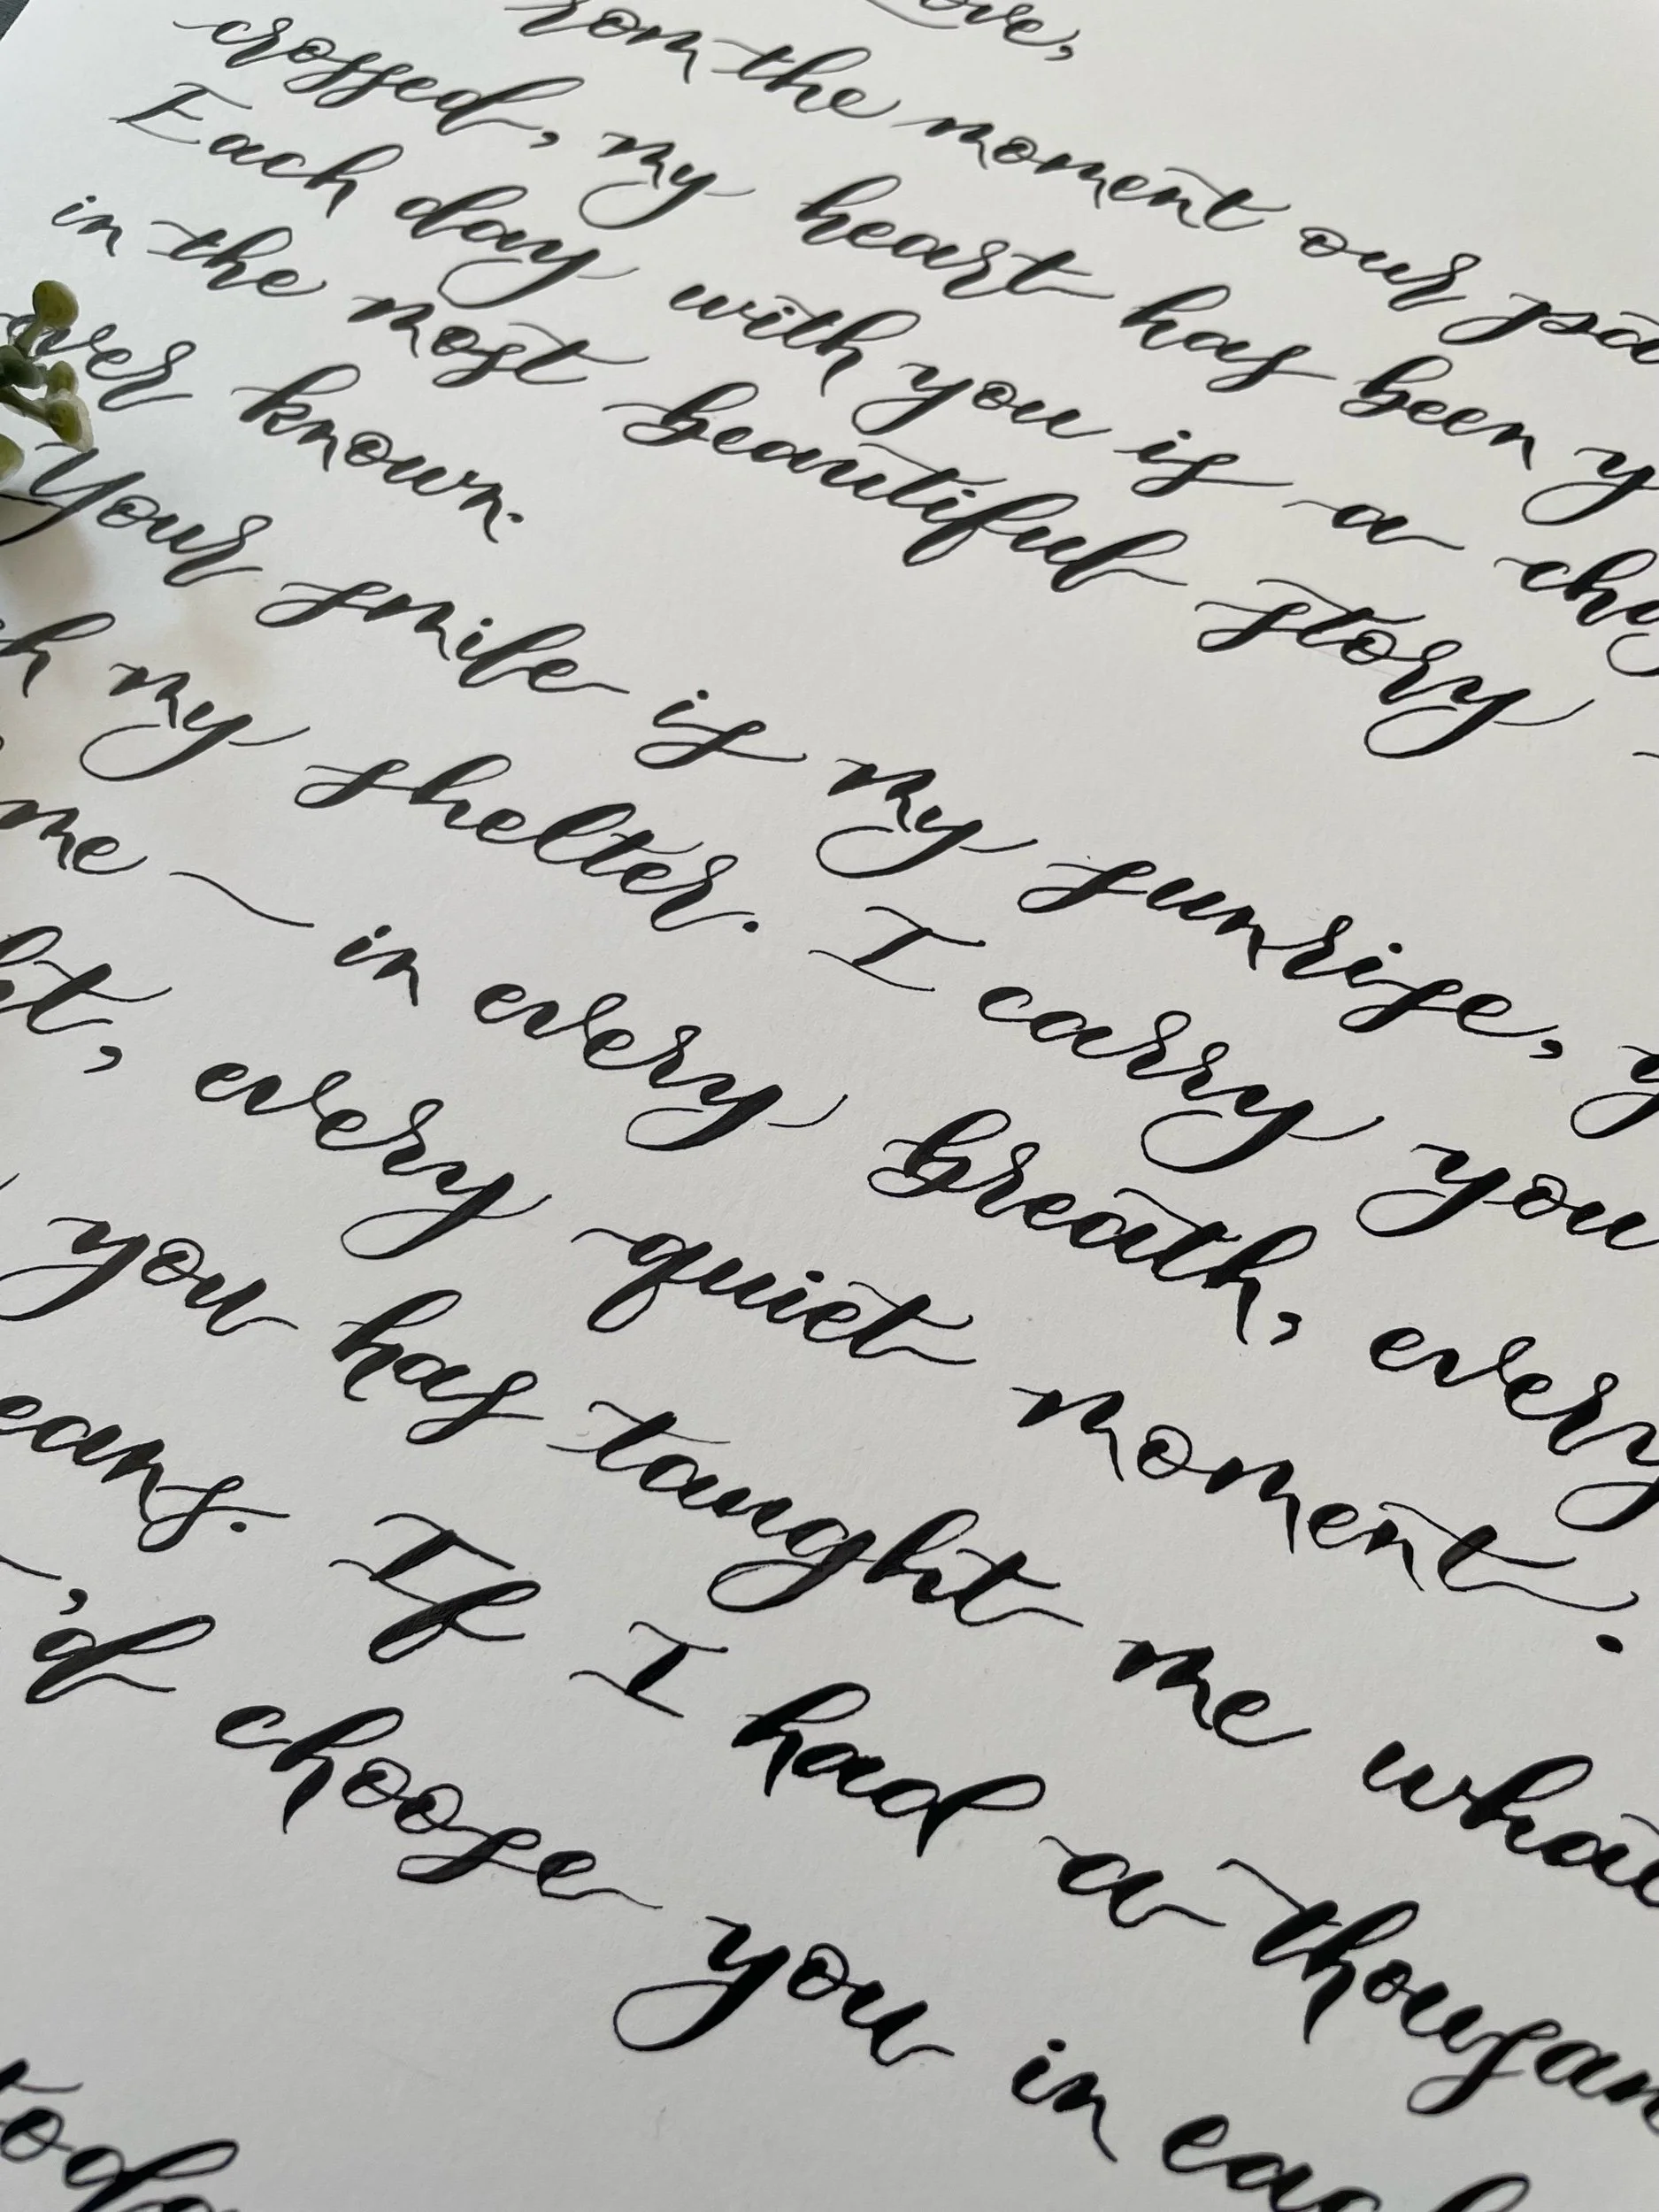 ove,
rom the moment our pa
crossed, my heart has been y
Each day with you is a chap
in the most beautiful story
ever known.
Your smile is my sunrise, y
my shelter. I carry you
me ~ in every breath, every
ht, every quiet moment.
you has taught me what
eans. If I had a thousan
, I'd choose you in each
toda